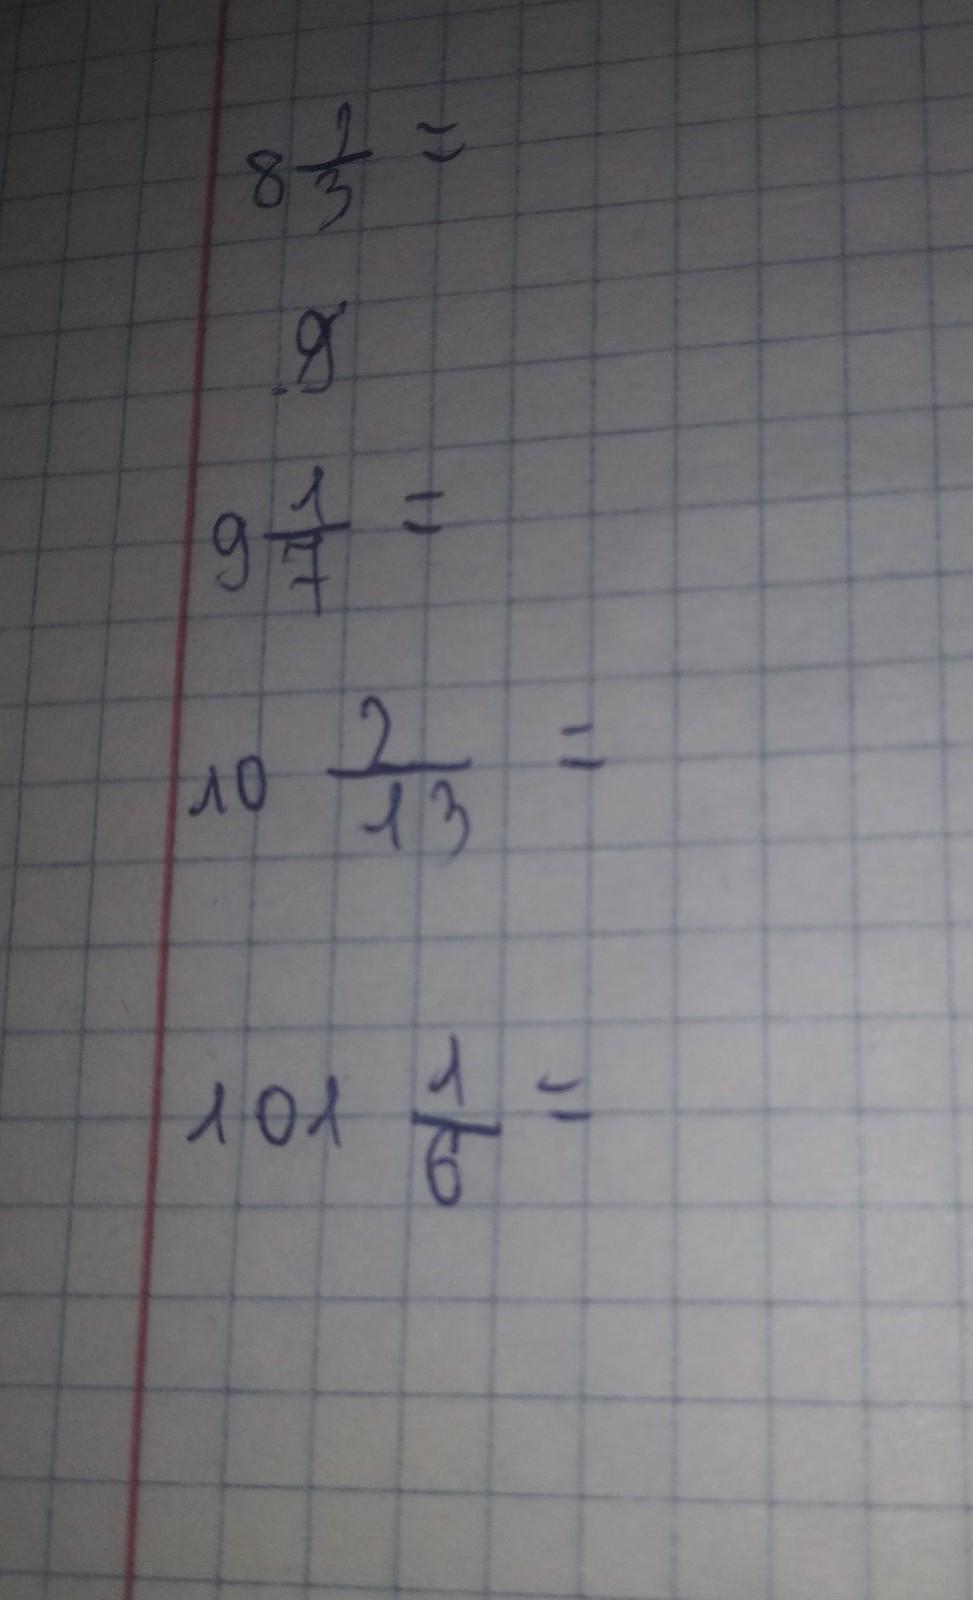 8 1/3 =
.9
9 1/7 =
10 2/13 =
101 1/6 =